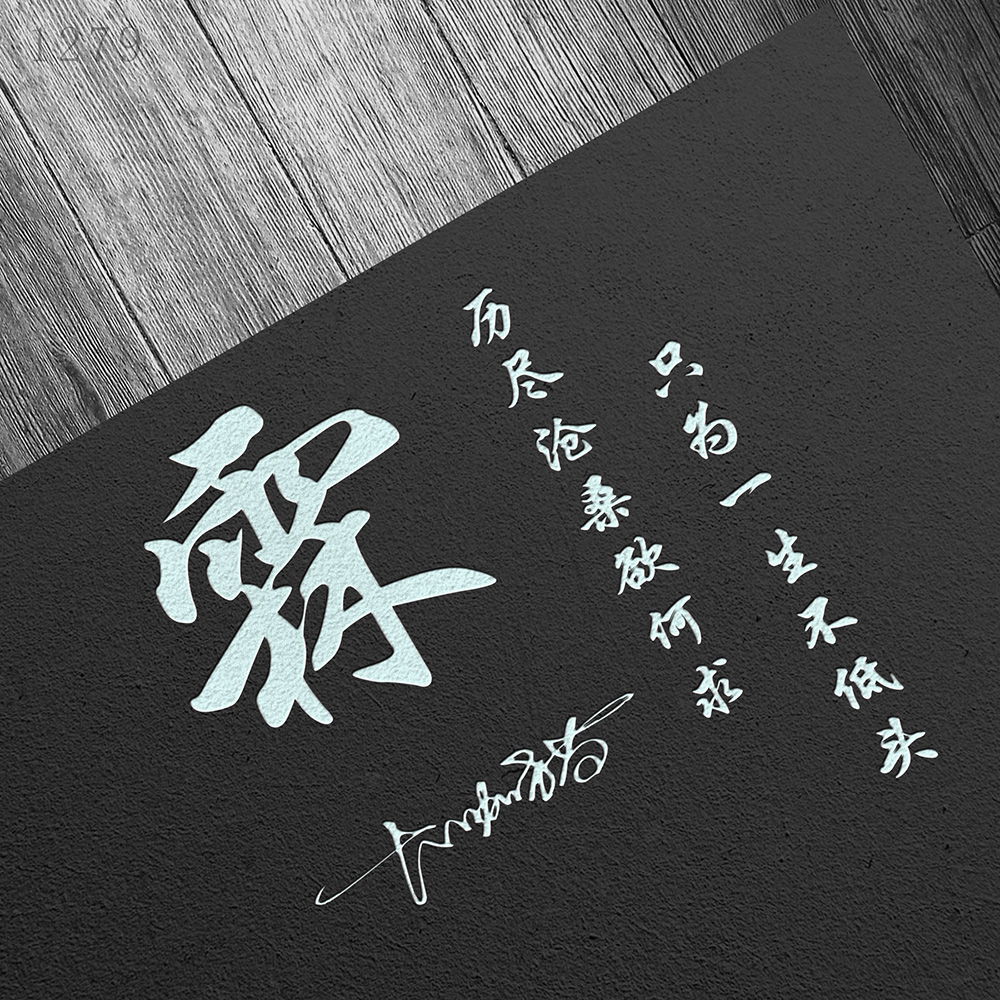 1279
霖
历尽沧桑欲何求
只为一生不低头